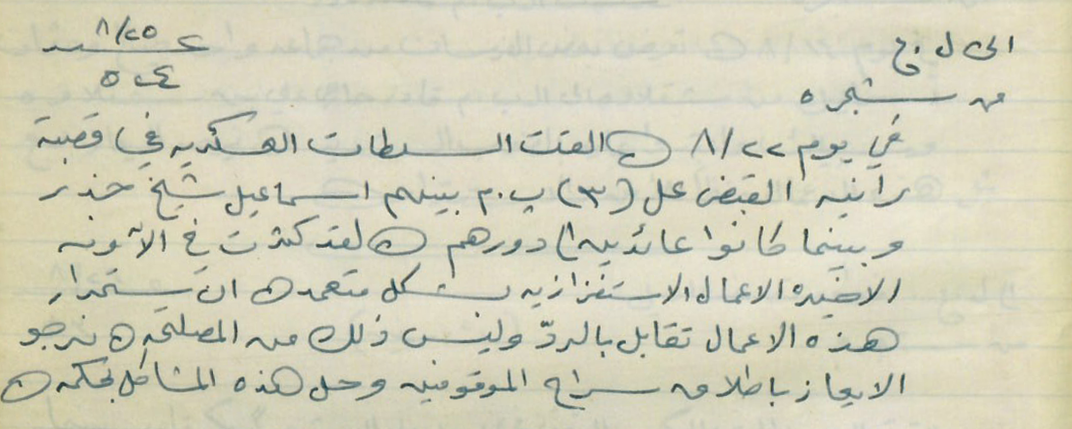 الى ل.ج
٨/٢٥
من شجره
٥٢٤
في يوم ٨/٢٢ القت السلطات العسكريه في قصبة
رانيه القبض على (٣) پ.م بينهم اسماعيل شيخ خذر
وبينما كانوا عائدين الى دورهم لقد كثرت في الآونه
الاخيره الاعمال الاستفزازيه بشكل متعمد ان استمرار
هذه الاعمال تقابل بالردّ وليس ذلك من المصلحه نرجو
الايعاز باطلاق سراح الموقوفين وحل هذه المشاكل بحكمه